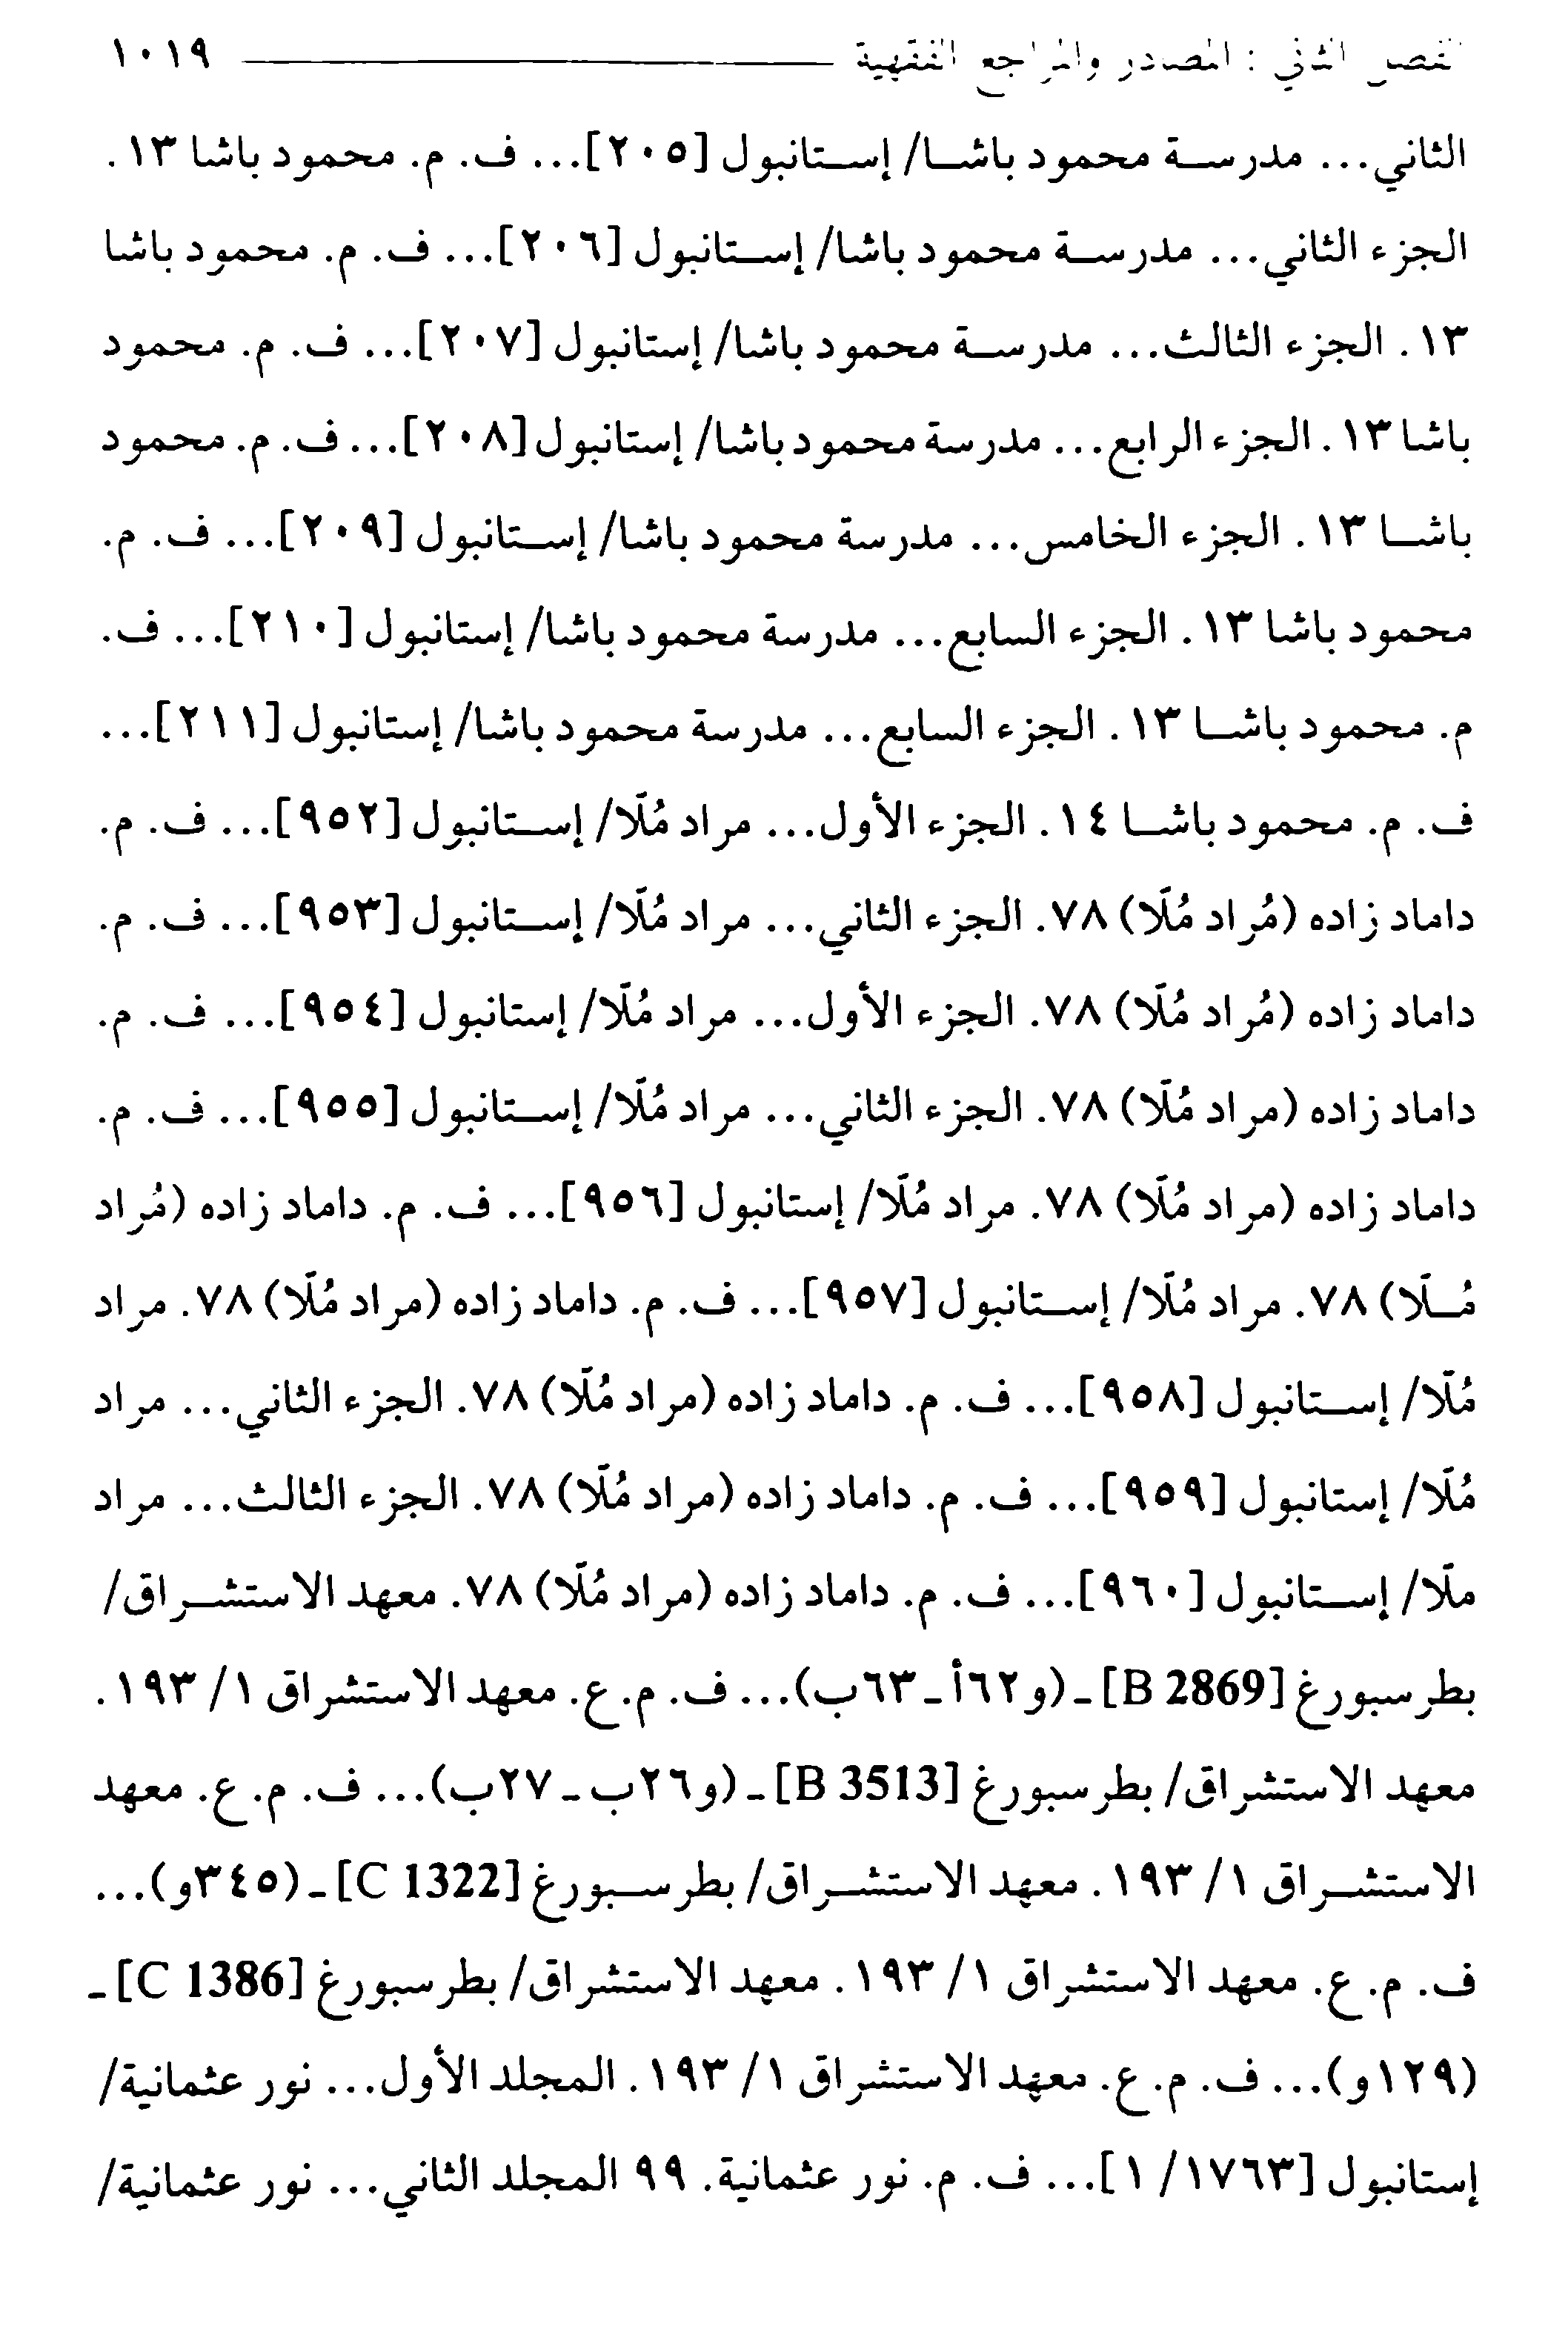 الفصل الثاني : المصادر والمراجع الفقهية ١٠١٩
الثاني... مدرسة محمود باشا/ إستانبول [٢٠٥]... ف. م. محمود باشا ١٣.
الجزء الثاني... مدرسة محمود باشا/ إستانبول [٢٠٦]... ف. م. محمود باشا
١٣. الجزء الثالث... مدرسة محمود باشا/ إستانبول [٢٠٧]... ف. م. محمود
باشا ١٣. الجزء الرابع... مدرسة محمود باشا/ إستانبول [٢٠٨]... ف. م. محمود
باشا ١٣. الجزء الخامس... مدرسة محمود باشا/ إستانبول [٢٠٩]... ف. م.
محمود باشا ١٣. الجزء السابع... مدرسة محمود باشا/ إستانبول [٢١٠]... ف.
م. محمود باشا ١٣. الجزء السابع... مدرسة محمود باشا/ إستانبول [٢١١]...
ف. م. محمود باشا ١٤. الجزء الأول... مراد مُلّا/ إستانبول [٩٥٢]... ف. م.
داماد زاده (مُراد مُلّا) ٧٨. الجزء الثاني... مراد مُلّا/ إستانبول [٩٥٣]... ف. م.
داماد زاده (مُراد مُلّا) ٧٨. الجزء الأول... مراد مُلّا/ إستانبول [٩٥٤]... ف. م.
داماد زاده (مراد مُلّا) ٧٨. الجزء الثاني... مراد مُلّا/ إستانبول [٩٥٥]... ف. م.
داماد زاده (مراد مُلّا) ٧٨. مراد مُلّا/ إستانبول [٩٥٦]... ف. م. داماد زاده (مُراد
مُلّا) ٧٨. مراد مُلّا/ إستانبول [٩٥٧]... ف. م. داماد زاده (مراد مُلّا) ٧٨. مراد
مُلّا/ إستانبول [٩٥٨]... ف. م. داماد زاده (مراد مُلّا) ٧٨. الجزء الثاني... مراد
مُلّا/ إستانبول [٩٥٩]... ف. م. داماد زاده (مراد مُلّا) ٧٨. الجزء الثالث... مراد
ملّا/ إستانبول [٩٦٠]... ف. م. داماد زاده (مراد مُلّا) ٧٨. معهد الاستشراق/
بطرسبورغ [B 2869] ـ (و٦٢أ ـ ٦٣ب)... ف. م. ع. معهد الاستشراق ١/ ١٩٣.
معهد الاستشراق/ بطرسبورغ [B 3513] ـ (و٢٦ب ـ ٢٧ب)... ف. م. ع. معهد
الاستشراق ١/ ١٩٣. معهد الاستشراق/ بطرسبورغ [C 1322] ـ (٣٤٥و)...
ف. م. ع. معهد الاستشراق ١/ ١٩٣. معهد الاستشراق/ بطرسبورغ [C 1386] ـ
(١٢٩و)... ف. م. ع. معهد الاستشراق ١/ ١٩٣. المجلد الأول... نور عثمانية/
إستانبول [١٧٦٣/ ١]... ف. م. نور عثمانية. ٩٩ المجلد الثاني... نور عثمانية/